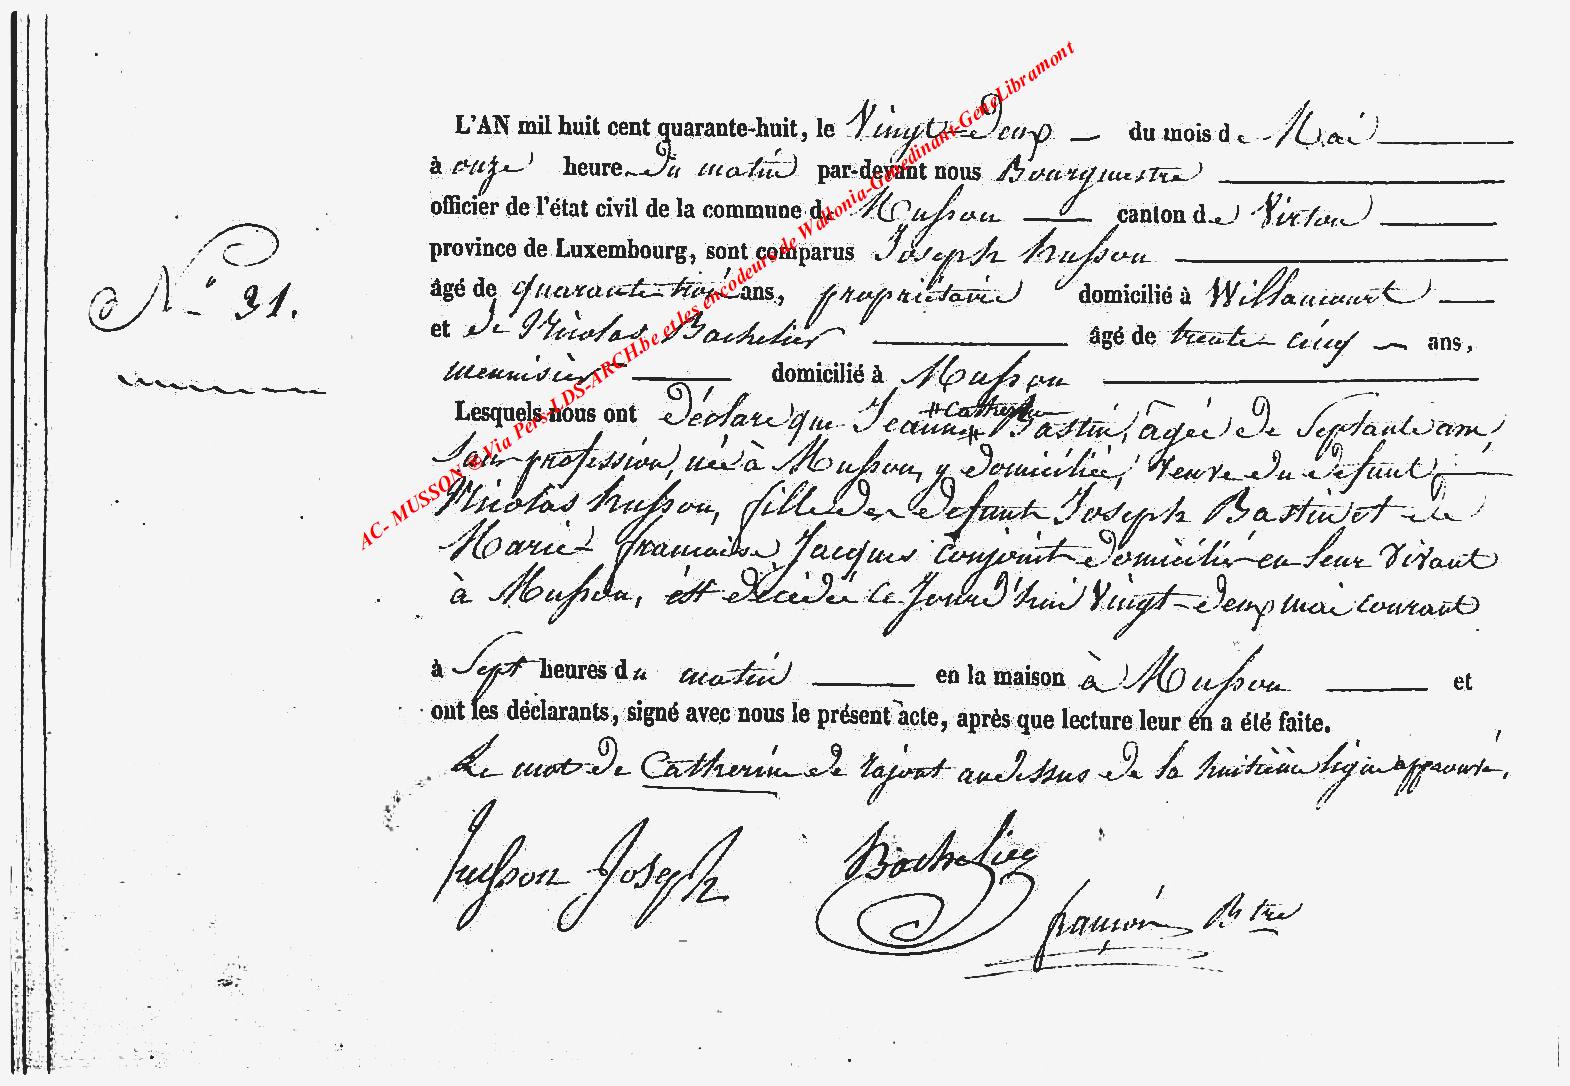 L'AN mil huit cent quarante-huit, le Vingt-deux du mois de Mai
à onze heures du matin par-devant nous Bourgmestre
officier de l'état civil de la commune de Musson canton de Virton
province de Luxembourg, sont comparus Joseph husson
N° 31.
âgé de quarante trois ans, propriétaire domicilié à Willancourt
et de Nicolas Bachelier âgé de trente cinq ans,
menuisier domicilié à Musson
#Catherine
Lesquels nous ont déclaré que Jeanne # Bastin, âgée de Septante ans,
Sans profession, née à Musson, y domiciliée, veuve du défunt
Nicolas husson, fille des défunts Joseph Bastin et de
Marie françoise Jacques conjoints domiciliés en leur vivant
à Musson, est décédée ce Jourd'hui Vingt-deux mai courant
à Sept heures du matin en la maison à Musson et
ont les déclarants, signé avec nous le présent acte, après que lecture leur en a été faite.
Le mot de Catherine de rajout au dessus de la huitième ligne approuvé,
husson Joseph Bachelier
françois Btre
AC- MUSSON @Via Pers-LDS-ARCH.be et les encodeurs de Wallonia-Genedinant-GeneLibramont